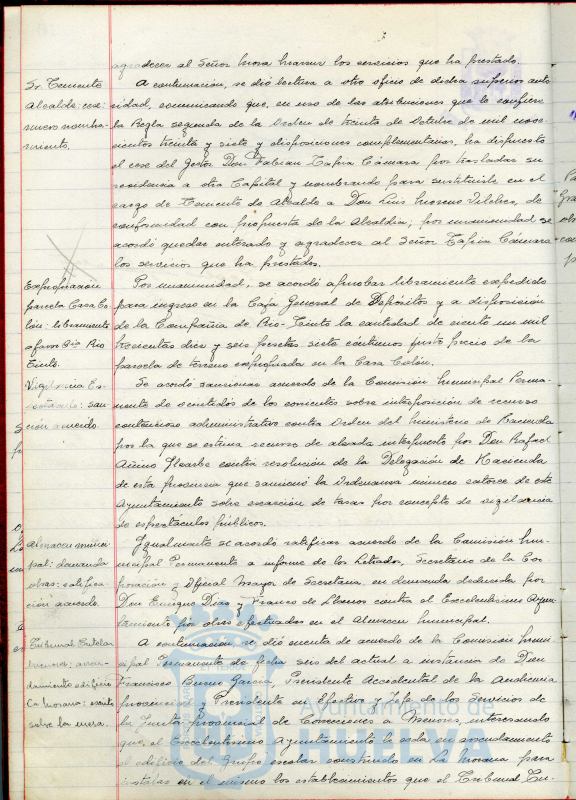 agradecer al Señor Mora Narsur los servicios que ha prestado.
Sr. Teniente
Alcalde: cese:
nuevo nombra-
miento.
A continuación, se dió lectura a otro oficio de dicha superior auto-
ridad, comunicando que, en uso de las atribuciones que le confiere
la Regla segunda de la Orden de treinta de Octubre de mil nove-
cientos treinta y siete y disposiciones complementarias, ha dispuesto
el cese del Gestor Don Fabian Tapia Cámara por trasladar su
residencia a otra Capital y nombrando para sustituirle en el
cargo de Teniente de Alcalde a Don Luis Moreno Vilches, de
conformidad con propuesta de la Alcaldia; por unanimidad se
acordó quedar enterado y agradecer al Señor Tapia Cámara
los servicios que ha prestado.
Expropiacion
parcela Casa Co-
lón: libramiento
a favor Cia Rio
Tinto.
Por unanimidad, se acordó aprobar libramiento expedido
para ingreso en la Caja General de Depósitos y a disposición
de la Compañia de Rio-Tinto la cantidad de ciento un mil
trescientas diez y seis pesetas siete céntimos justo precio de la
parcela de terreno expropiada en la Casa Colón.
Vigilancia Es-
pectáculos: san-
ción acuerdo.
Se acordó sancionar acuerdo de la Comisión Municipal Perma-
nente de veintidos de los corrientes sobre interposición de recurso
contencioso administrativo contra Orden del Ministerio de Hacienda
por la que se estima recurso de alzada interpuesto por Don Rafael
contra resolución de la Delegación de Hacienda
de esta provincia que sancionó la Ordenanza número catorce de este
Ayuntamiento sobre exacción de tasas por concepto de vigilancia
de espectáculos públicos.
Almacen munici-
pal: demanda
obras: ratifica-
ción acuerdo.
Igualmente se acordó ratificar acuerdo de la Comisión Mu-
nicipal Permanente a informe de los Letrados, Secretario de la Cor-
poración y Oficial Mayor de Secretaria, en demanda deducida por
Don Enrique Diaz y Franco de Llanos contra el Excelentísimo Ayun-
tamiento por obras efectuadas en el Almacen Municipal.
Tribunal Tutelar
Menores: arren-
damiento edificio
La Morana: queda
sobre la mesa.
A continuación, se dió cuenta de acuerdo de la Comision Muni-
cipal Permanente de fecha seis del actual a instancia de Don
Francisco Bueno García, Presidente Accidental de la Audiencia
provincial y Presidente en efectivo y Jefe de los Servicios de
la Junta provincial de Protección a Menores, interesando
que, el Excelentísimo Ayuntamiento le ceda en arrendamiento
el edificio del Grupo escolar construido en La Morana para
instalar en el mismo los establecimientos que el Tribunal Tu-
Ayuntamiento de
HUELVA